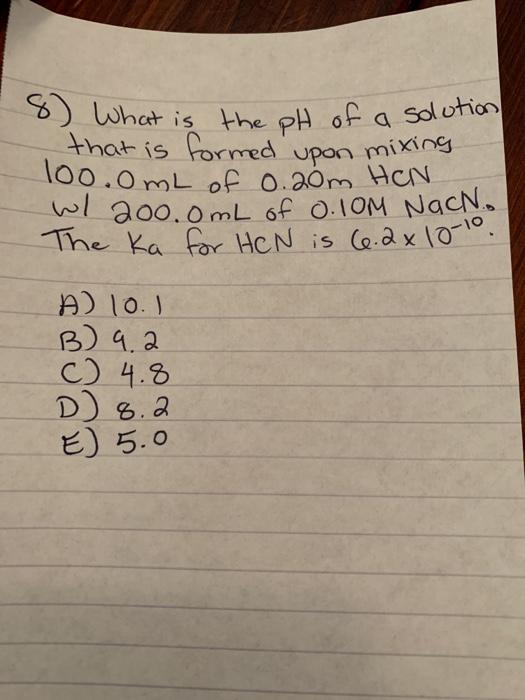 8) What is the pH of a solution
that is formed upon mixing
100.0mL of 0.20m HCN
w/ 200.0mL of 0.10M NaCN.
The Ka for HCN is 6.2 x 10⁻¹⁰.
A) 10.1
B) 9.2
C) 4.8
D) 8.2
E) 5.0